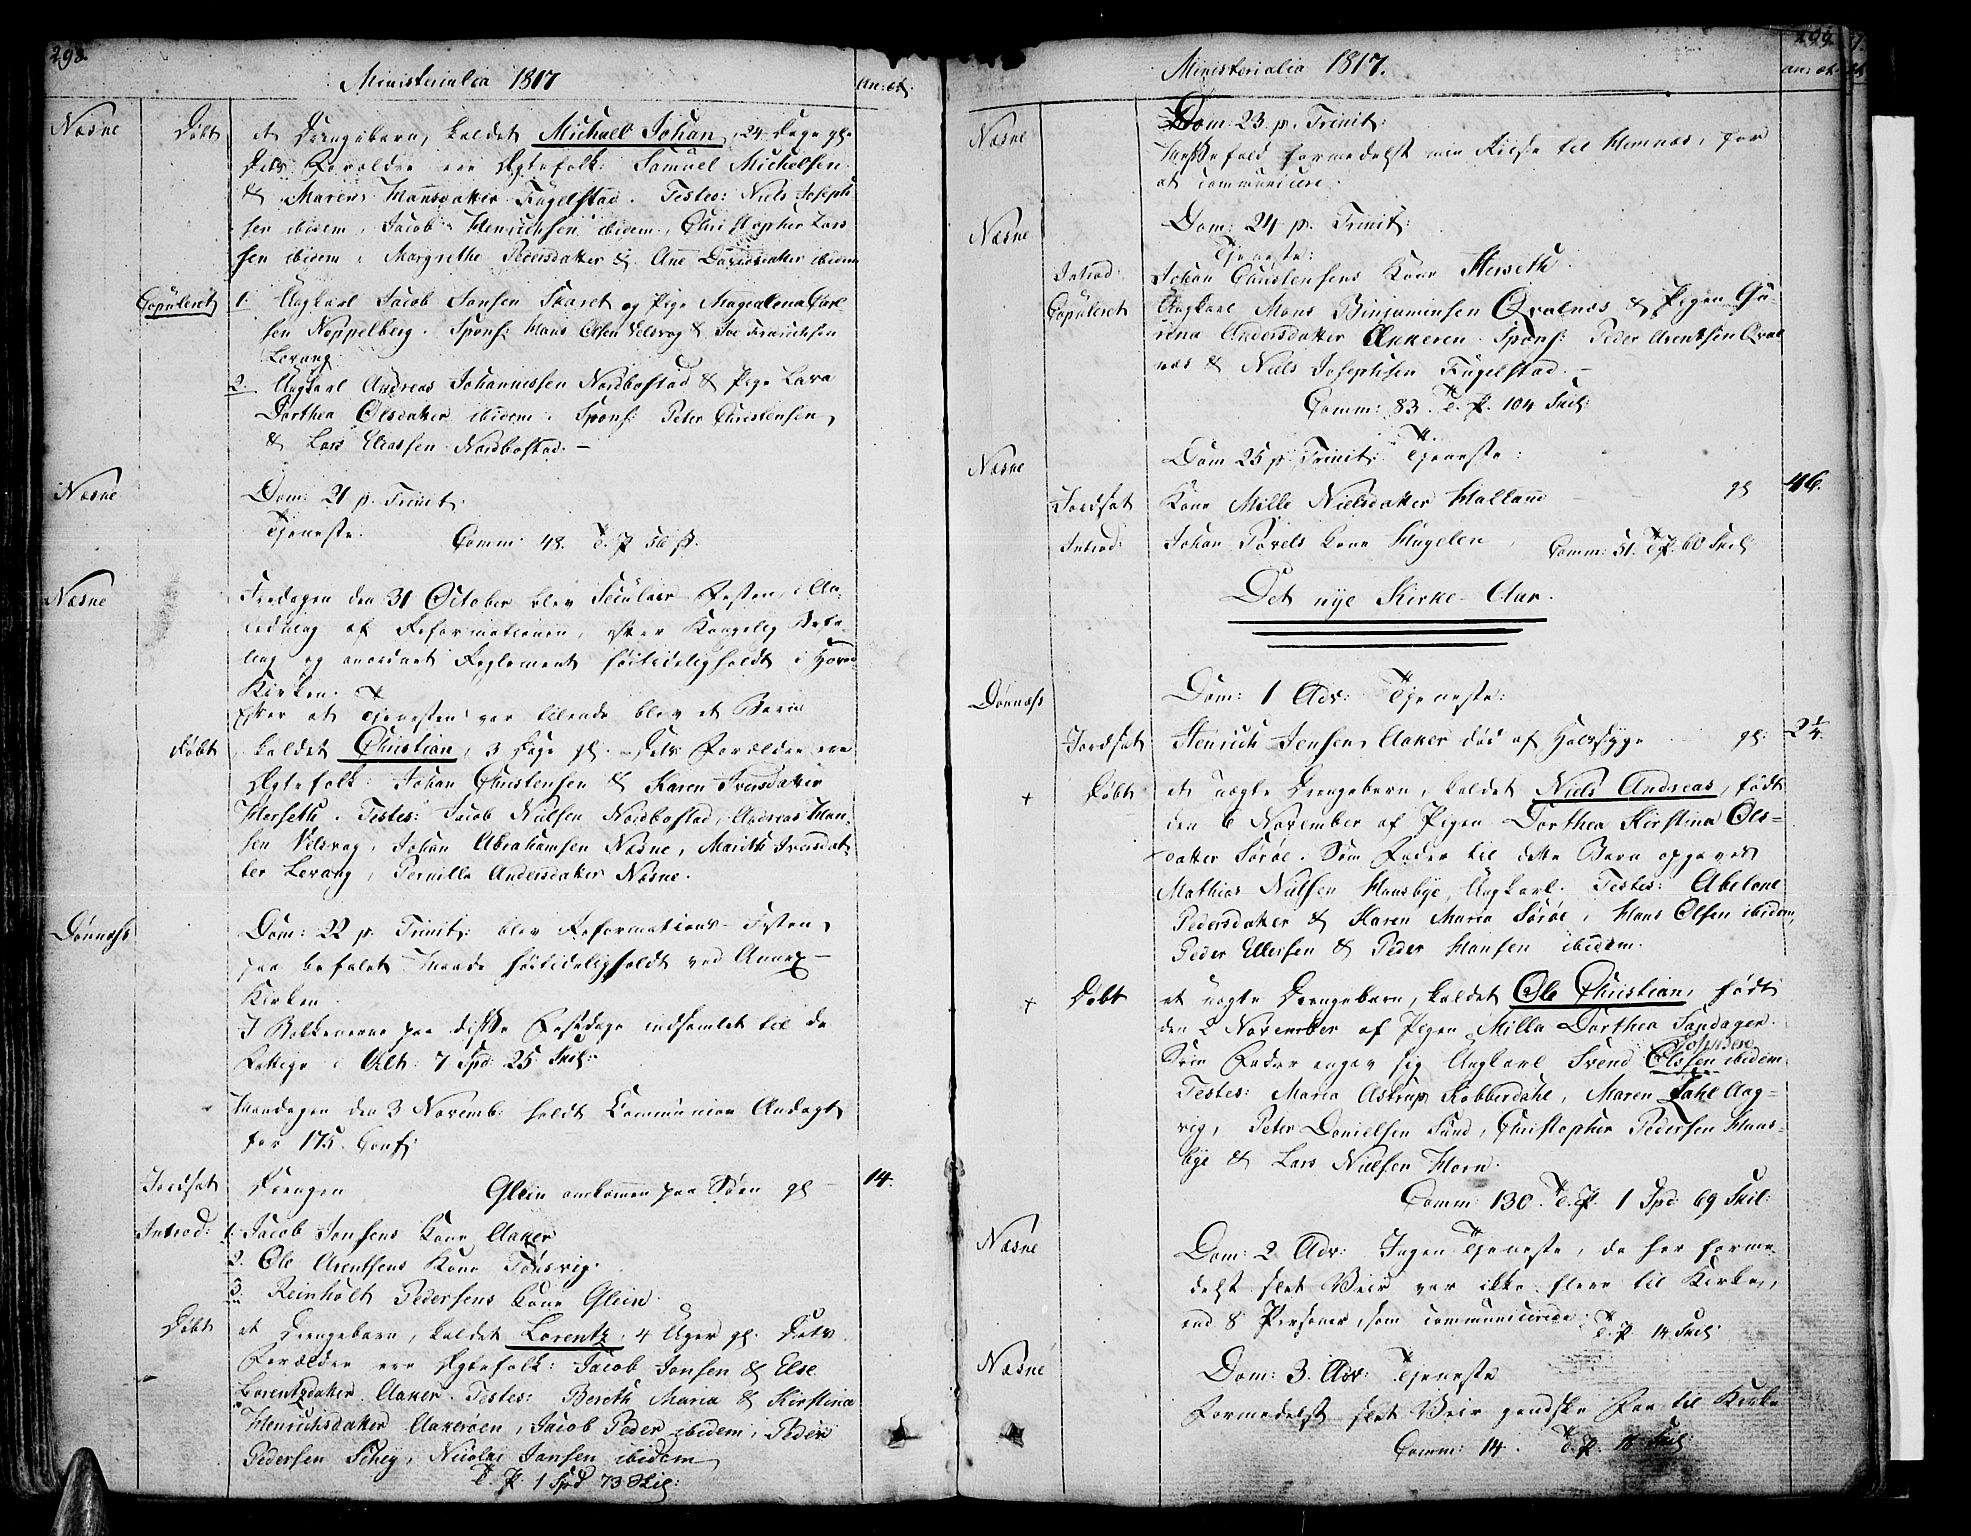 298.
Ministerialia 1817
an: æt.
Næsne Døbt et Drengebarn, kaldet Michael Johan, 24 Dage gl.
Dets Forældre ere Ægtefolk: Samuel Michelsen
& Maren Hansdatter Fugelstad. Testes: Niels Joseph
sen ibidem, Jacob Henrichsen ibidem, Christopher Lars
sen ibidem, Margrethe Pedersdatter & Ane Davidsdatter ibidem
Copuleret 1. Ungkarl Jacob Jonsen Skaret og Pige Magdalena Carl
sen Noppelberg. Spons: Hans Olsen Vilsvog & Joe Henrichsen
Levang.
2. Ungkarl Andreas Johannessen Nordbostad & Pige Lava
Dorthea Olsdatter ibidem. Spons: Peter Christensen,
& Lars Eliassen Nordbostad. –
Næsne Dom: 21 p. Trinit:
Tjeneste. Comm: 48. T. P. 56 ß.
Næsne Fredagen den 31 October blev Seculair Festen i An
ledning af Reformationen, efter Kongelig Befa
ling og anordnet Reglement høitideligholdt i Hoved
Kirken.
Efter at Tjenesten var tilende blev et Barn
Døbt kaldet Christian, 3 Dage gl. Dets Forældre ere
Ægtefolk: Johan Christensen & Karen Iversdatter
Herseth. Testes: Jacob Nielsen Nordbostad, Andreas Han
sen Vilsvog, Johan Abrahamsen Næsne, Marith Iversdat
ter Levang, Pernille Andersdatter Næsne.
Dönnæss Dom: 22 p. Trinit: blev Reformations-Festen,
paa befalet Maade høitideligholdt ved Annex-
Kirken.
I Bekkenerne paa disse Festdage indsamlet til de
Fattige i Alt: 7 Spd. 25 Skil:
Mandagen den 3 Novemb: holdt Communion Andagt
for 175. Conf:
Jordfæt Drengen Glein omkommen paa Søen gl – 14.
Introd: 1. Jacob Jonsens Kone Aaker
2. Ole Arentsens Kone Tønsvig.
3. Reinholt Pedersens Kone Glein.
Døbt et Drengebarn, kaldet Lorentz, 4 Uger gl. Dets
Forældre ere Ægtefolk: Jacob Jonsen & Else
Lorentzdatter Aaker. Testes: Bereth Maria & Kirstina
Henrichsdatter Aakerøen, Jacob Peder ibidem, Peder
Pedersen Schey, Nicolai Jansen ibidem
T. P. 1 Spd 73 Skil:
299.
Ministerialia 1817.
an: æt.
Næsne Dom: 23. p. Trinit:
Messefald formedelst min Reise til Hemnæs, for
at communicere.
Næsne Dom: 24 p. Trinit:
Tjeneste:
Introd: Johan Christensens Kone Herseth.
Copuleret Ungkarl Mons Binjaminsen Qvalnæs & Pigen Gu-
rina Andersdatter Ankeren. Spons: Peder Arentsen Qval
næs & Niels Josephsen Fugelstad. –
Comm: 83. T. P. 104 Skil:
Næsne Dom 25 p. Trinit: Tjeneste:
Jordfæt Kone Mille Nielsdatter Halland gl 46.
Introd: Johan Povels Kone Hugelen, Comm: 51. T. P. 60 Skil:
Det nye Kirke-Aar.
Dönnæss Dom: 1 Adv: Tjeneste:
Jordfæt Henrich Jensen, Aaker død af Halssyge gl: 2 1/4
+ Døbt et uægte Drengebarn, kaldet Niels Andreas, født
den 6 November af Pigen Dorthea Kirstina Ols-
datter Sørøe. Som Fader til dette Barn opgaves
Mathias Nielsen Hansbye, Ungkarl. Testes: Abelone
Pedersdatter & Karen Maria Sørøe, Hans Olsen ibidem,
Peder Ellersen & Peder Hansen ibidem.
+ Døbt et uægte Drengebarn, kaldet Ole Christian, født
den 2 November af Pigen Milla Dorthea Sandager.
Som Fader angav sig Ungkarl Svend Olssen ibidem
Johnsen
Testes: Maria Astrup Kobberdahl, Maren Dahl Aag-
vig, Peter Danielsen Sund, Christopher Pedersen Hans-
bye & Lars Nielsen Horn.
Comm: 130. T. P. 1 Spd 69 Skil:
Næsne Dom: 2 Adv: Ingen Tjeneste, da her forme
delst slet Veir var ikke flere til Kirke,
end 8 Personer, som communicerede. T. P. 14 Skil:
Næsne Dom: 3. Adv: Tjeneste
Formedelst slet Veir gandske Faa til Kirke
Comm: 14. T. P. 18 Skil: